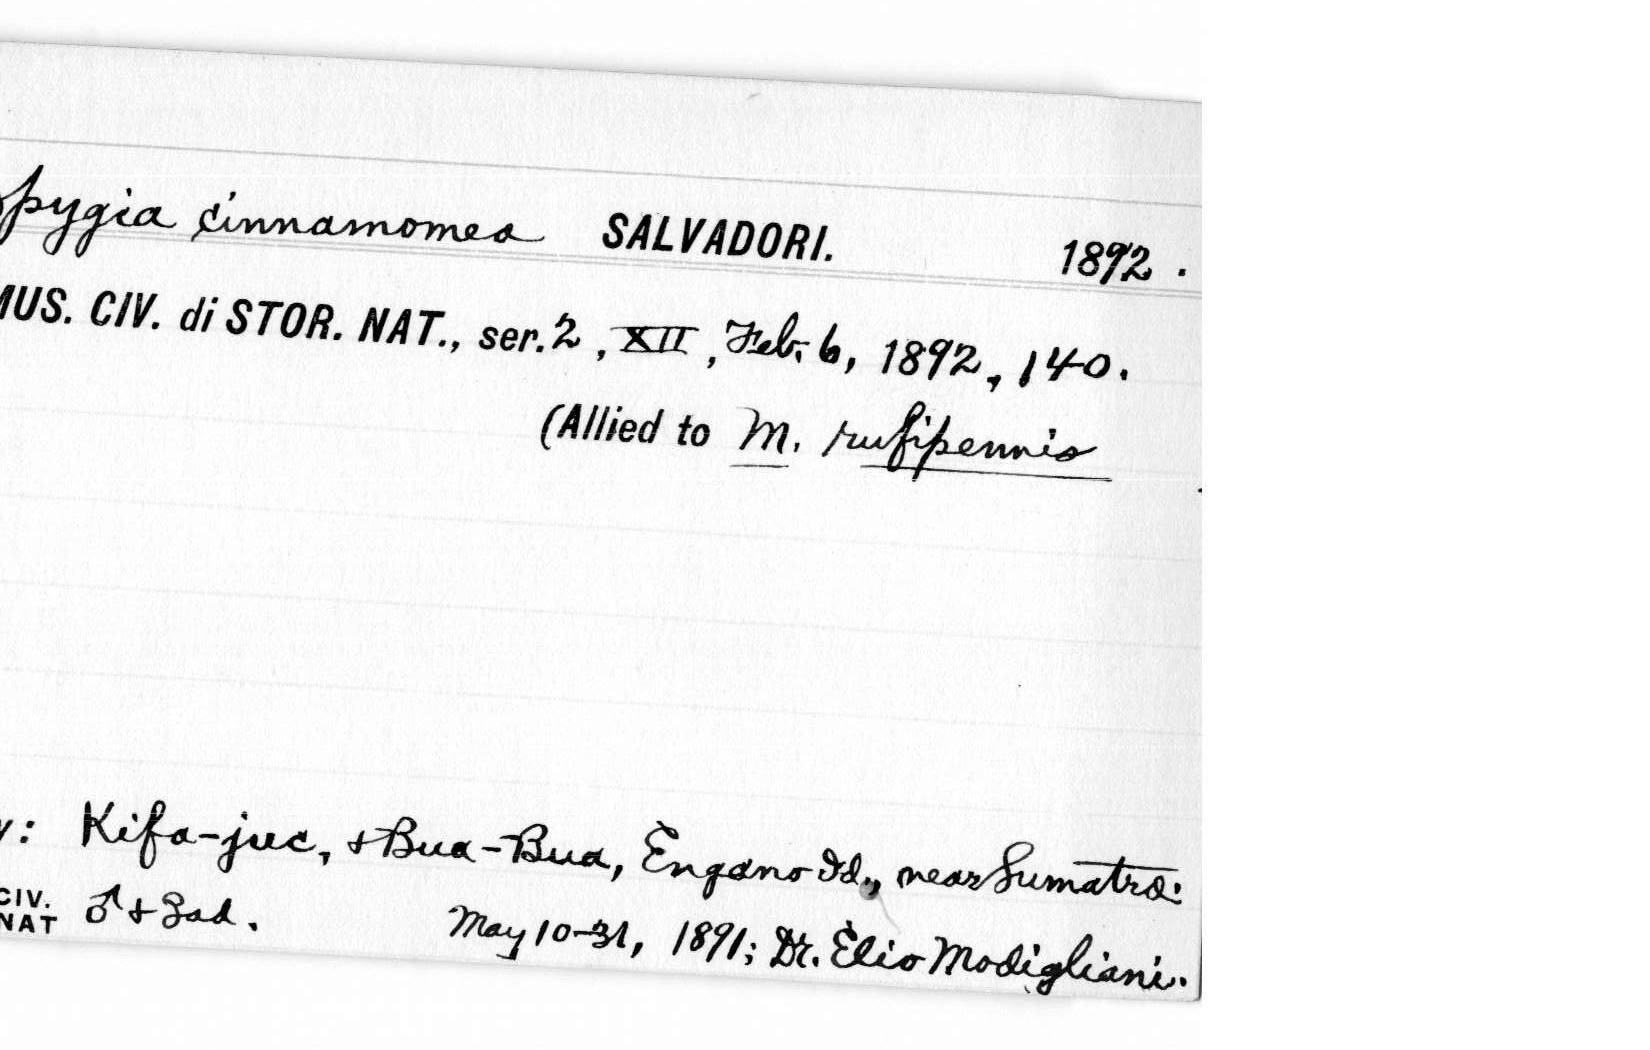 pygia cinnamomea SALVADORI. 1892.
MUS. CIV. di STOR. NAT., ser. 2, XII, Feb. 6, 1892, 140.
(Allied to M. rufipennis
y: Kifa-juc, & Bua-Bua, Engano Id., near Sumatra.
CIV.
NAT ♂ & ad.
May 10-31, 1891; Dr. Elio Modigliani.